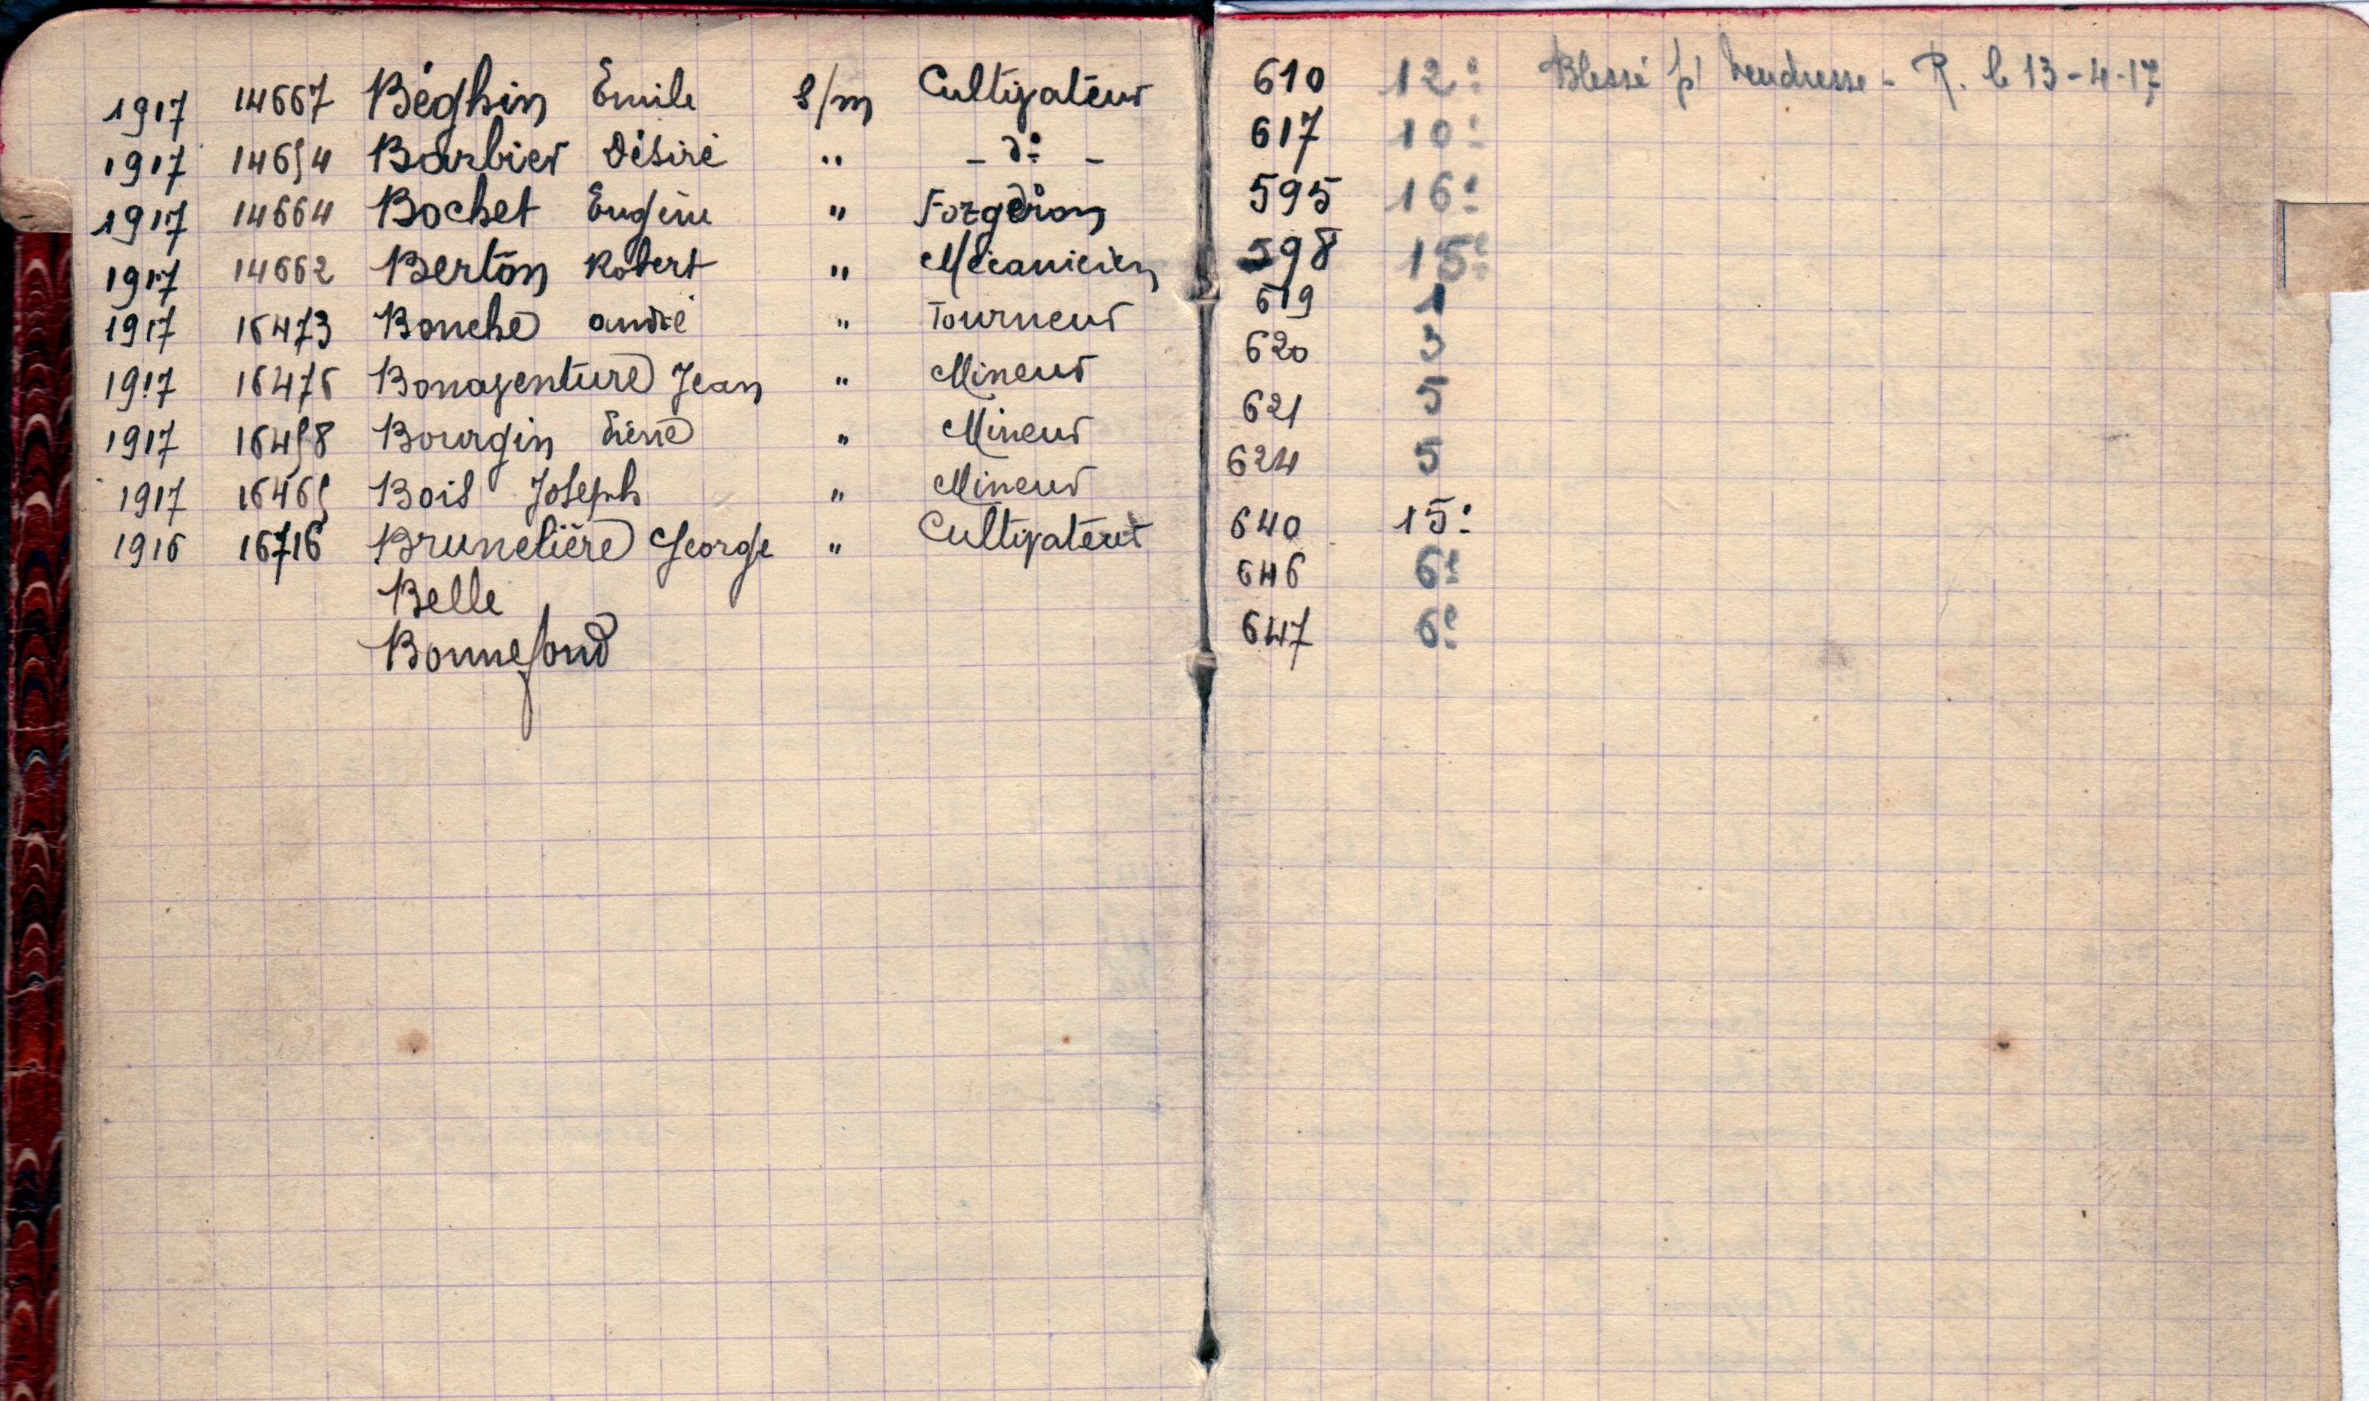 1917 14667 Béghin Emile S/m Cultivateur 610 12e Blessé pt Vendresse - R. le 13-4-17
1917 14654 Barbier Désiré " - d° - 617 10e
1917 14664 Bochet Eugène " Forgeron 595 16e
1917 14662 Berton Robert " Mécanicien 598 15e
1917 16473 Bouche André " Tourneur 619 1
1917 16476 Bonaventure Jean " Mineur 620 3
1917 16458 Bourgin Pierre " Mineur 621 5
1917 16465 Bois Joseph " Mineur 624 5
1916 16716 Brunelière George " Cultivateur 640 15e
Belle 646 6e
Bonnefond 647 6e